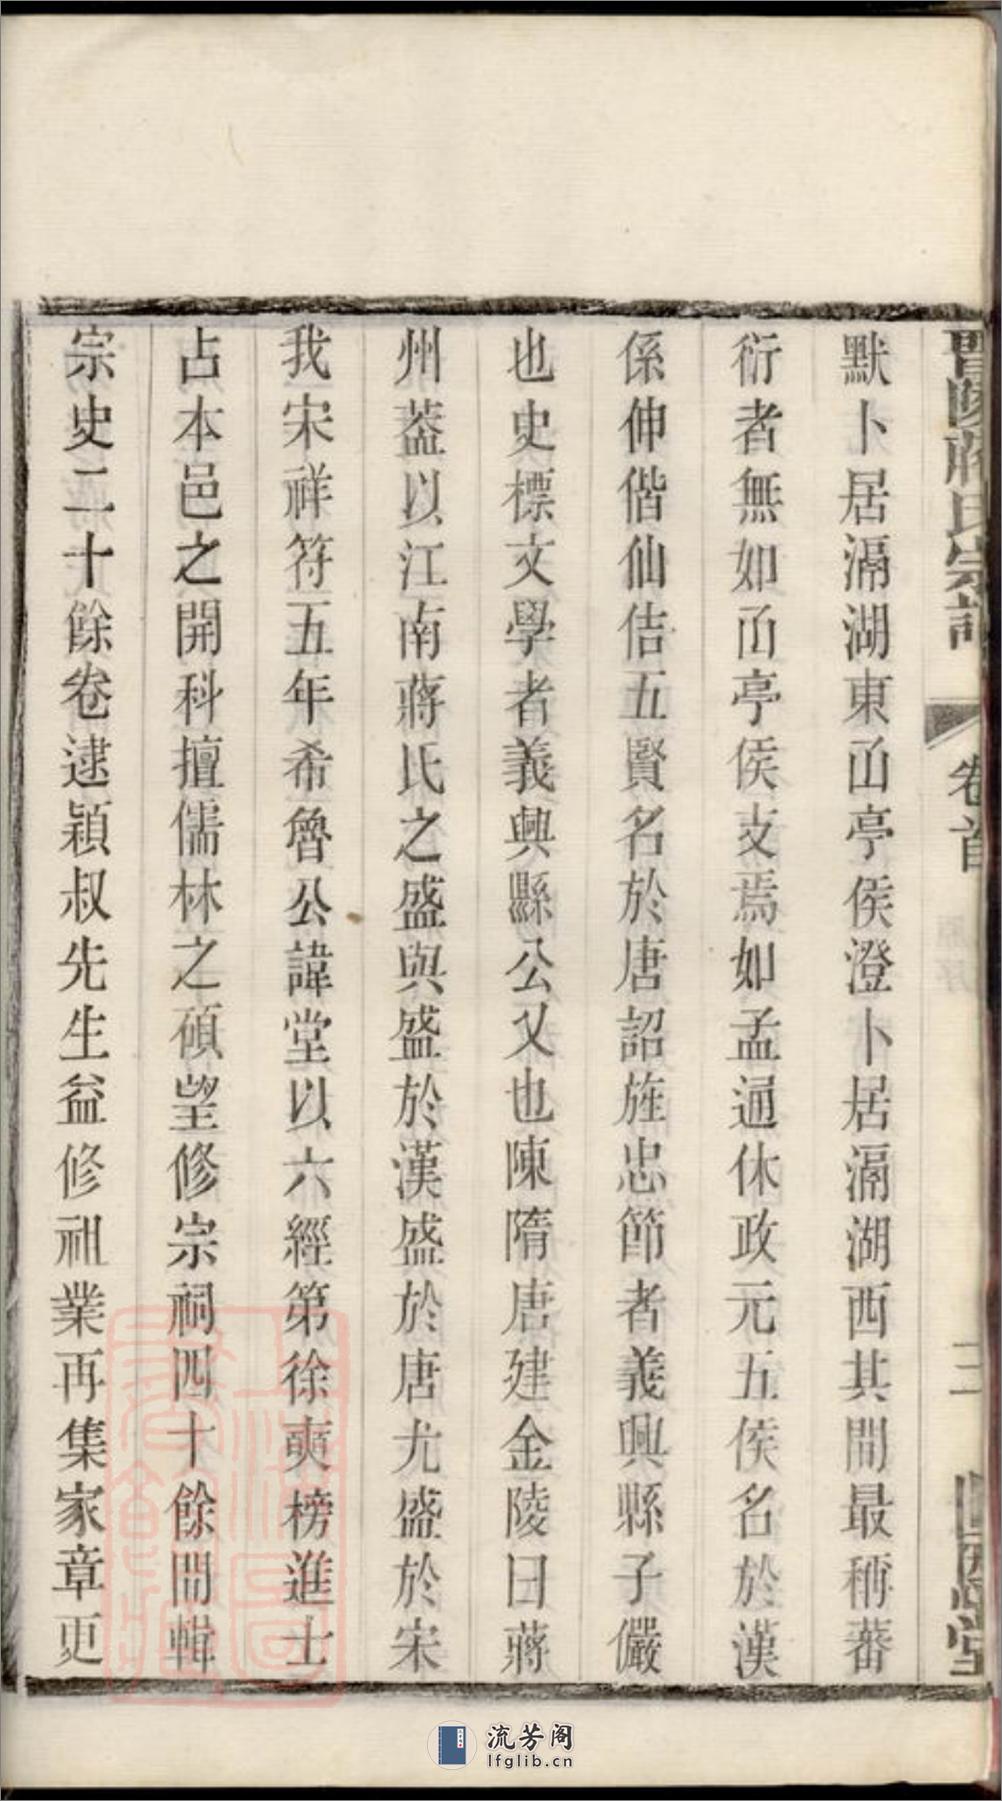 晋陵蔣氏宗譜 卷首 原序 三
默卜居滆湖東㘭亭侯澄卜居滆湖西其間最稱蕃
衍者無如㘭亭侯支焉如孟通休政元五侯名於漢
係伸偕仙佶五賢名於唐詔旌忠節者義興縣子儼
也史標文學者義興縣公乂也陳隋唐建金陵曰蔣
州葢以江南蔣氏之盛與盛於漢盛於唐尤盛於宋
我宋祥符五年希魯公諱堂以六經第徐奭榜進士
占本邑之開科擅儒林之碩望修宗祠四十餘間輯
宗史二十餘卷逮穎叔先生益修祖業再集家章更
流芳阁
lfglib.cn